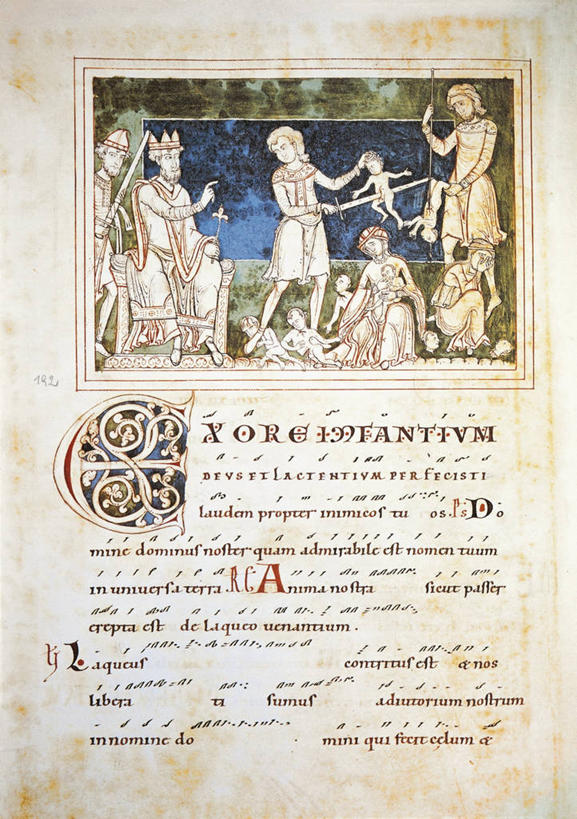 192
EX ORE INFANTIUM
DEUS ET LACTENTIUM PERFECISTI
laudem propter inimicos tu os. Ps Do
mine dominus noster quam admirabile est nomen tuum
in universa terra. RG Anima nostra sicut passer
erepta est de laqueo venantium.
Laqueus contritus est & nos
libera ti sumus adiutorium nostrum
in nomine do mini qui fecit celum &